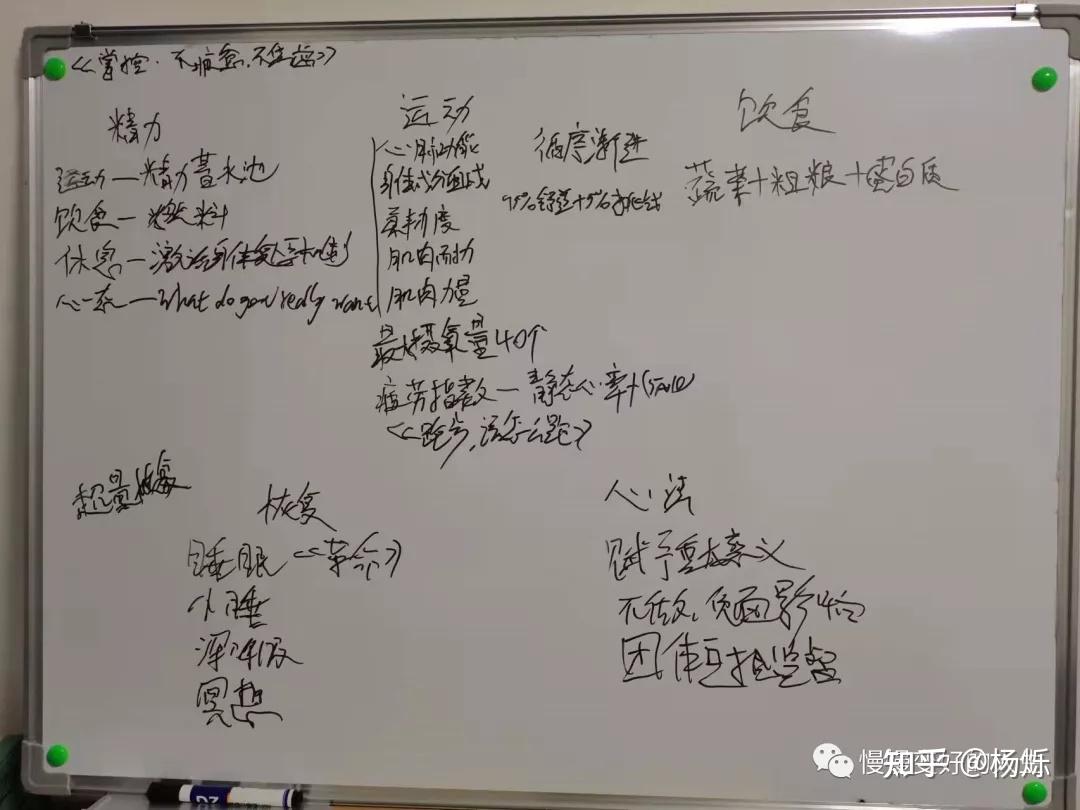 《掌控·不疲惫,不焦虑》
精力
运动—精力蓄水池
饮食—燃料
休息—激活身体复原机制
心态—What do you really want
运动
心肺功能
身体成分
柔韧度
肌肉耐力
肌肉力量
循序渐进
95%舒适+5%挑战
最大摄氧量40个
疲劳指数—静态心率+
《跑步,该怎么跑》
饮食
蔬菜+粗粮+蛋白质
超量恢复
恢复
睡眠《革命》
小睡
深呼吸
冥想
心法
赋予重大意义
不做,负面影响
团体互相监督
知乎 @杨烁